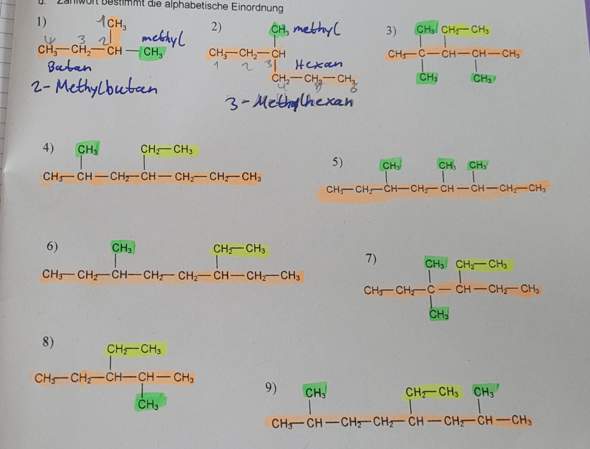 Zahlwort bestimmt die alphabetische Einordnung
1)
1 CH₃
4 3 2 methyl
CH₃—CH₂—CH—CH₃
Butan
2-Methylbutan
2)
CH₃ methyl
CH₃—CH₂—CH
1 2 3 Hexan
CH₂—CH₂—CH₃
4 5 6
3-Methylhexan
3)
CH₃ CH₂—CH₃
CH₃—C—CH—CH—CH₃
CH₃ CH₃
4)
CH₃ CH₂—CH₃
CH₃—CH—CH₂—CH—CH₂—CH₂—CH₃
5)
CH₃ CH₃ CH₃
CH₃—CH₂—CH—CH₂—CH—CH—CH₂—CH₃
6)
CH₃ CH₂—CH₃
CH₃—CH₂—CH—CH₂—CH₂—CH—CH₂—CH₃
7)
CH₃ CH₂—CH₃
CH₃—CH₂—C—CH—CH₂—CH₃
CH₃
8)
CH₂—CH₃
CH₃—CH₂—CH—CH—CH₃
CH₃
9)
CH₃ CH₂—CH₃ CH₃
CH₃—CH—CH₂—CH₂—CH—CH₂—CH—CH₃